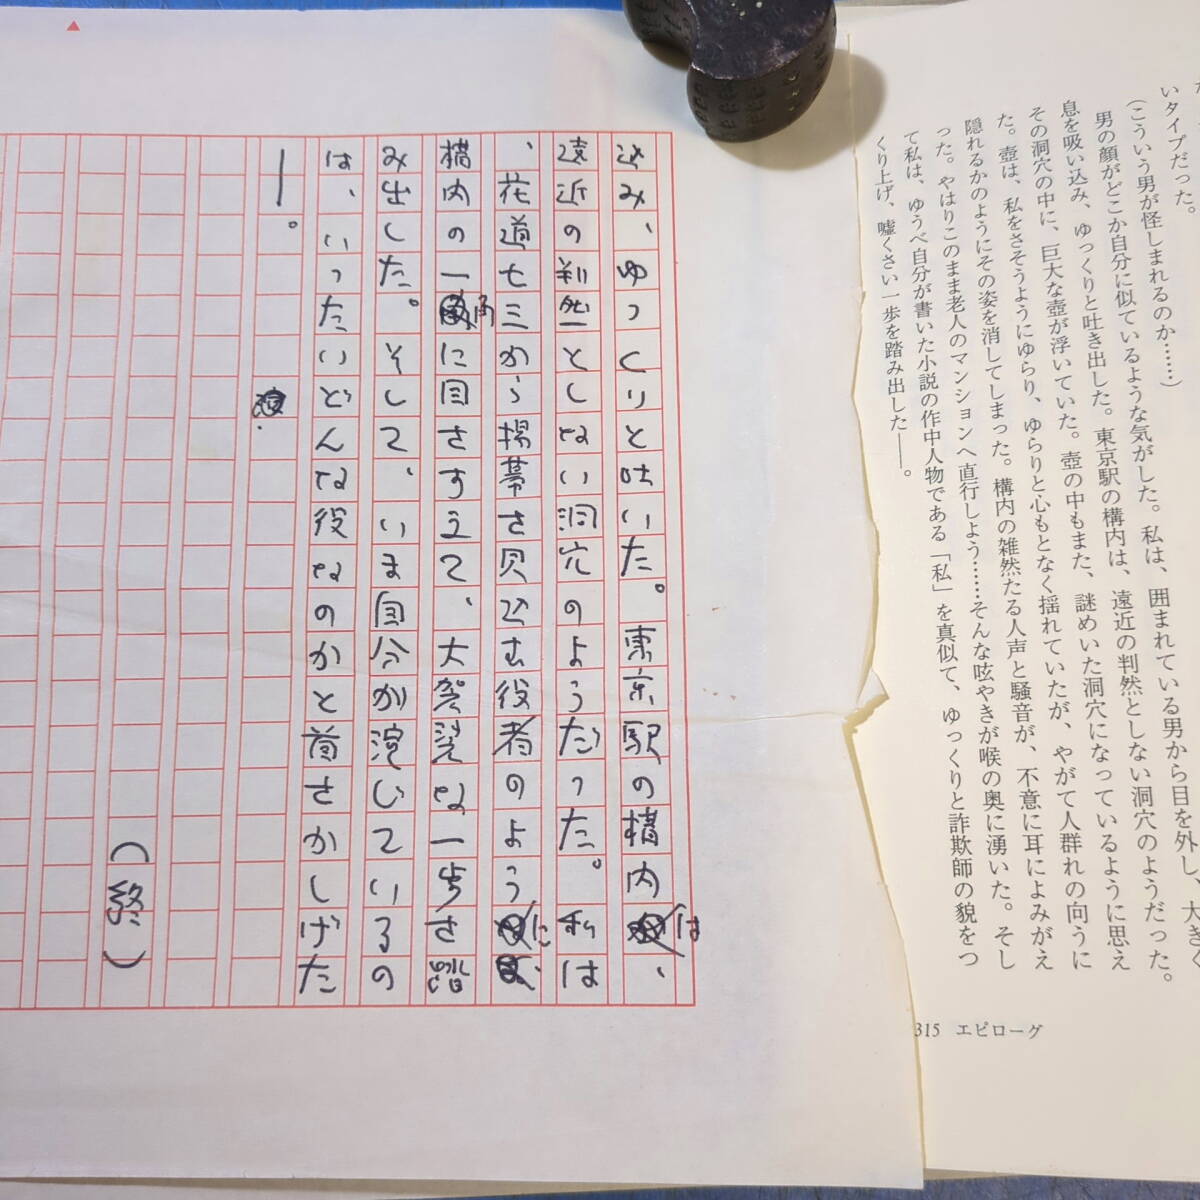 いタイプだった。
（こういう男が怪しまれるのか……）
男の顔がどこか自分に似ているような気がした。私は、囲まれている男から目を外し、大きく
息を吸い込み、ゆっくりと吐き出した。東京駅の構内は、遠近の判然としない洞穴のようだった。
その洞穴の中に、巨大な壺が浮いていた。壺の中もまた、謎めいた洞穴になっているように思え
た。壺は、私をさそうようにゆらり、ゆらりと心もとなく揺れていたが、やがて人群れの向うに
隠れるかのようにその姿を消してしまった。構内の雑然たる人声と騒音が、不意に耳によみがえ
った。やはりこのまま老人のマンションへ直行しよう……そんな呟やきが喉の奥に湧いた。そし
て私は、ゆうべ自分が書いた小説の作中人物である「私」を真似て、ゆっくりと詐欺師の貌をつ
くり上げ、嘘くさい一歩を踏み出した——。
315 エピローグ
込み、ゆっくりと吐いた。東京駅の構内は、
遠近の判然としない洞穴のようだった。私は
、花道七三から揚幕を見込む役者のように
構内の一角に目をすえて、大袈裟な一歩を踏
み出した。そして、いま自分が演じているの
は、いったいどんな役なのかと首をかしげた
—。
（終）